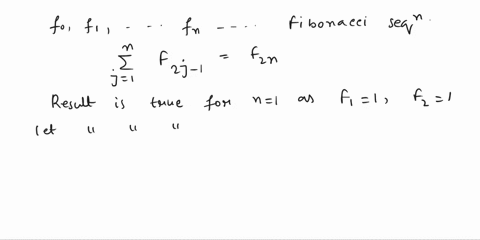 f₀, f₁, ---- fₙ ---- Fibonacci seqⁿ.
∑ⁿⱼ₌₁ F₂ⱼ₋₁ = f₂ₙ
Result is true for n=1 as f₁=1, f₂=1
let " " "